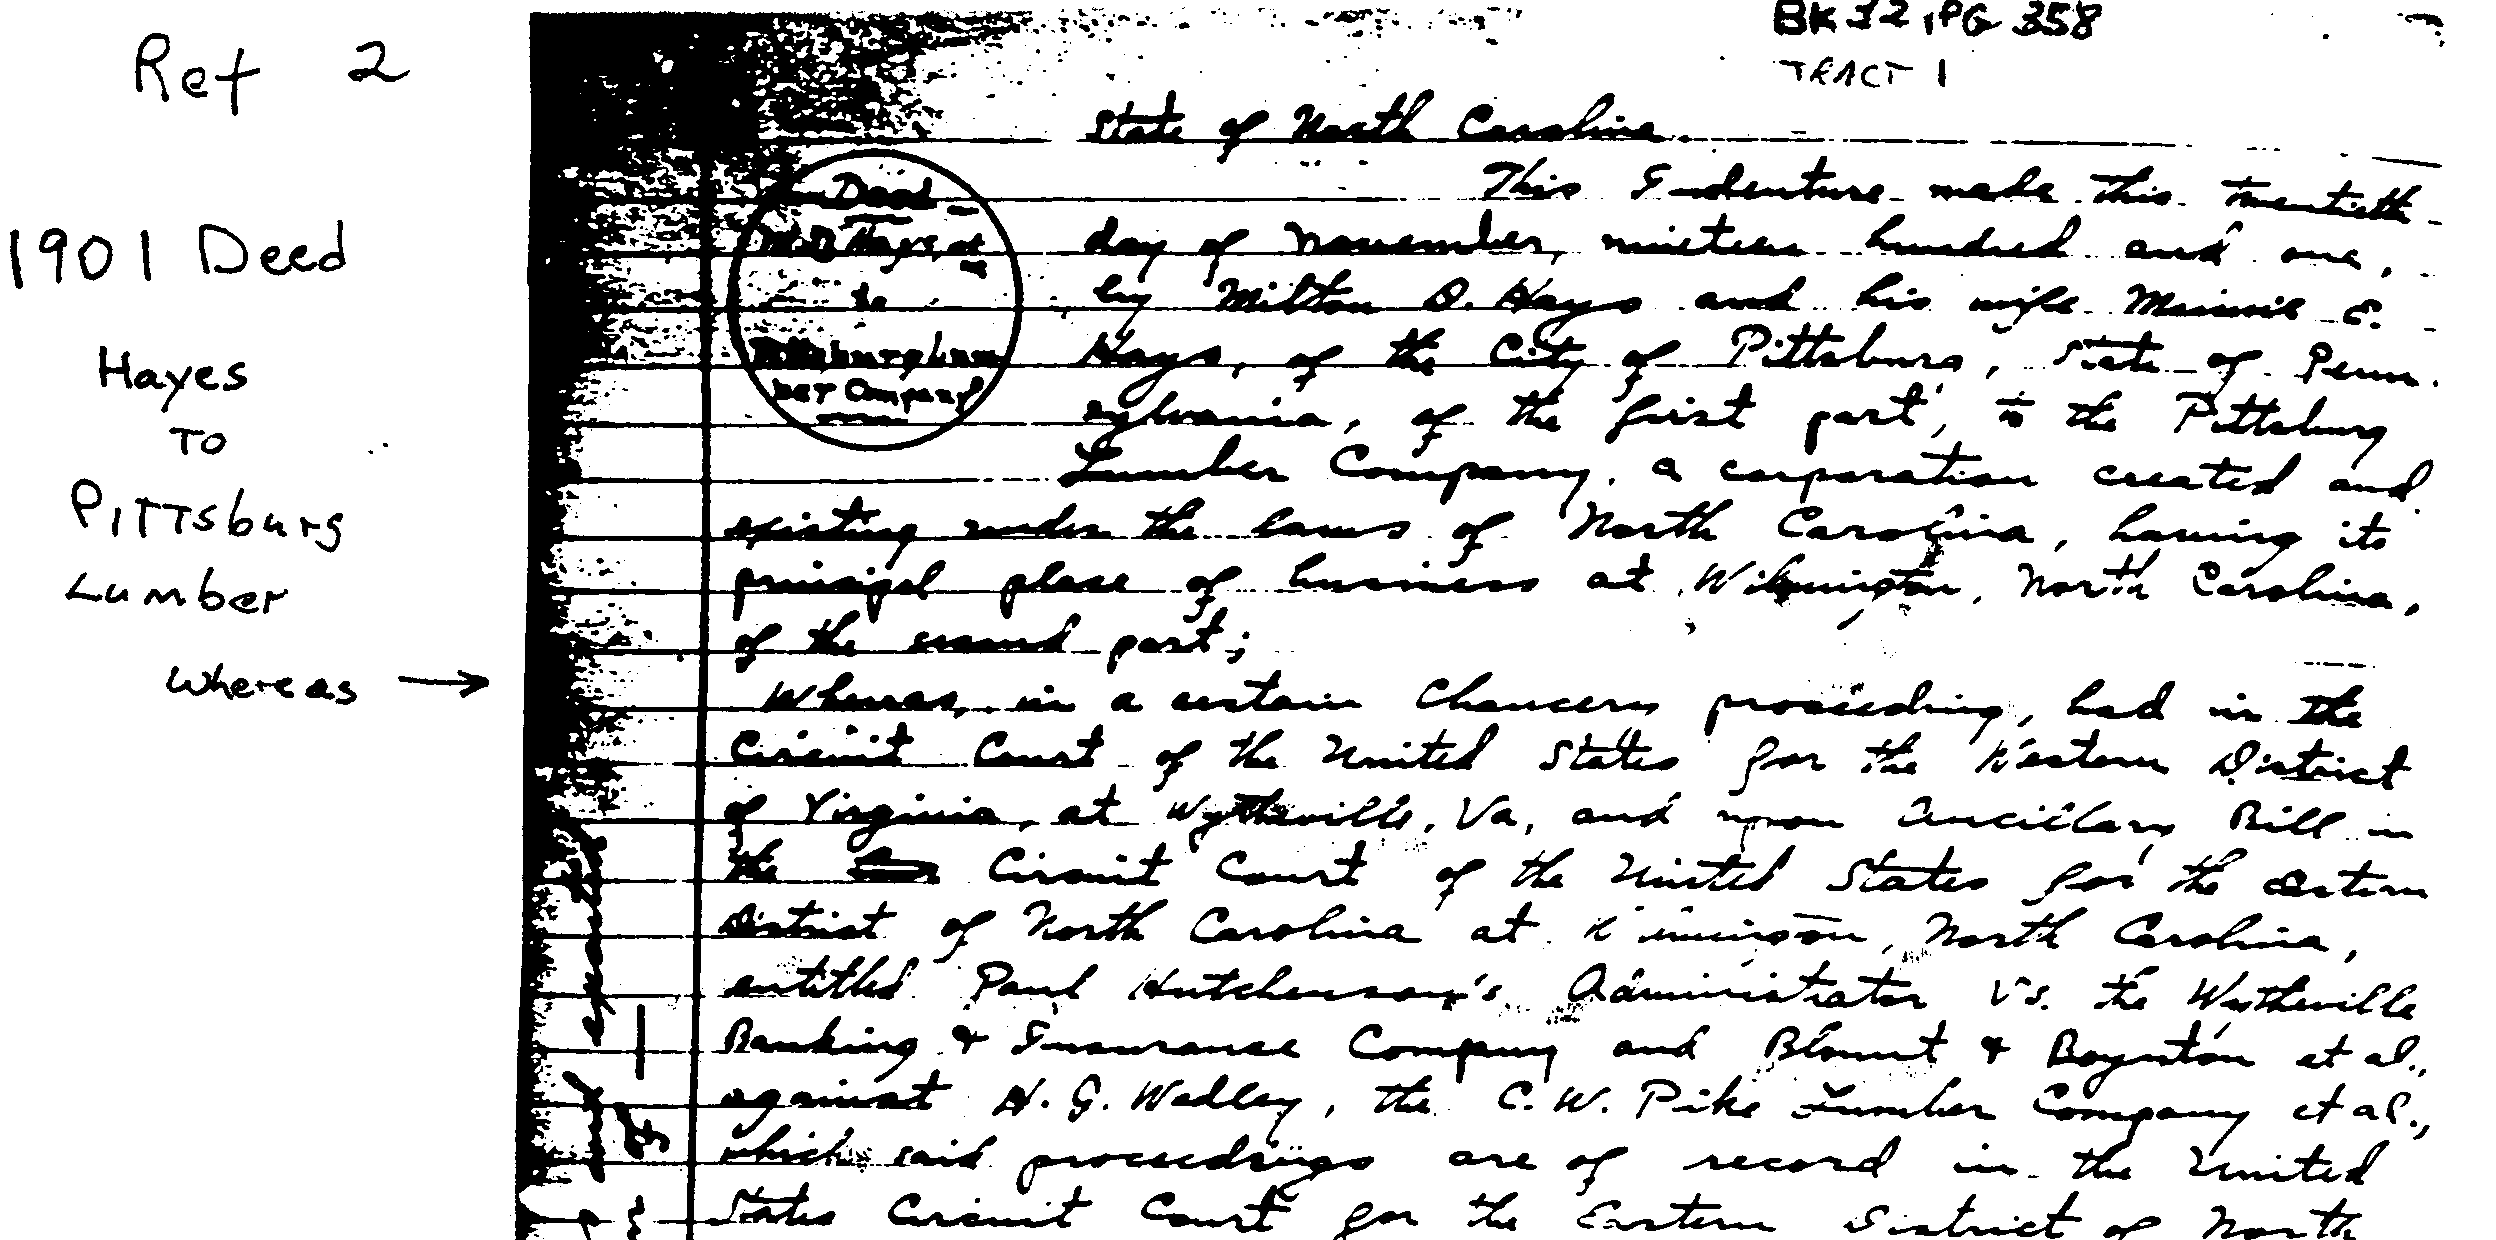 BK 32, PG 358
TRACT 1
Ref 2
1901 Deed
Hayes
TO
PITTsburg
Lumber
Whereas →
Deed
M.D. Hays, et
to
Pittsburg Lum
ber Company
State of North Carolina.
This Indenture made this twentieth
day of November, nineteen hundred and one,
by Milton D. Hays and his wife Minnie E.
Hays, of the City of Pittsburg, State of Penn.
sylvania, of the first part, to the Pittsburg
Lumber Company, a corporation created and
existing under the laws of North Carolina, having its
principal place of business at Wilmington, North Carolina,
of the second part;
Whereas, in a certain Chancery proceeding, had in the
Circuit Court of the United States for the Western District
of Virginia, at Wytheville, Va, and upon Ancillary Bill in
the Circuit Court of the United States for the Eastern
District of North Carolina at Wilmington, North Carolina,
entitled Paul Hutchenson's Administrator Vs. the Wytheville
Banking & Insurance Company and Blount & Boynton et al.,
against H. G. Wadley, the C. W. Pike Lumber Company et al.,
which said proceedings are of record in the United
States Circuit Court for the Eastern District of North